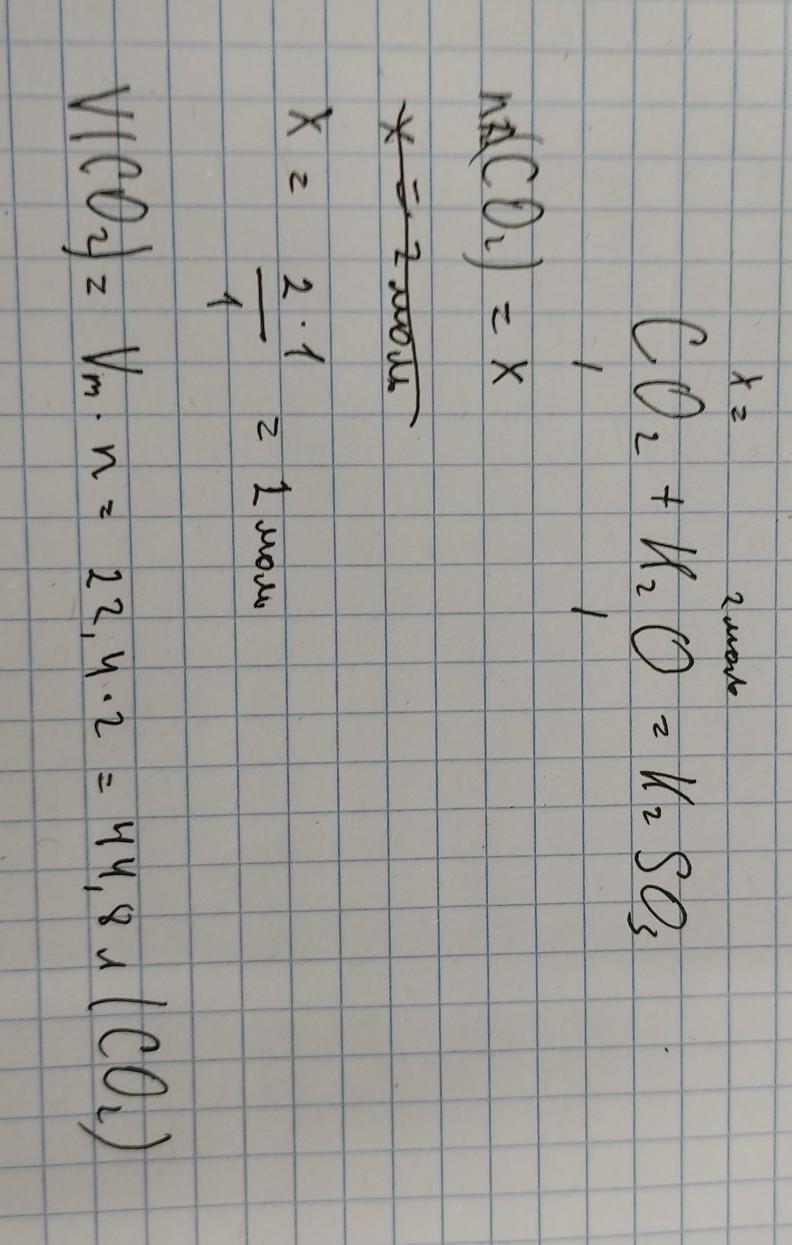 x = 2 моль
CO₂ + H₂O = H₂SO₃
1 1
n(CO₂) = x
x = 2 моль
x = 2·1 / 1 = 2 моль
V(CO₂) = Vm · n = 22,4 · 2 = 44,8 л (CO₂)